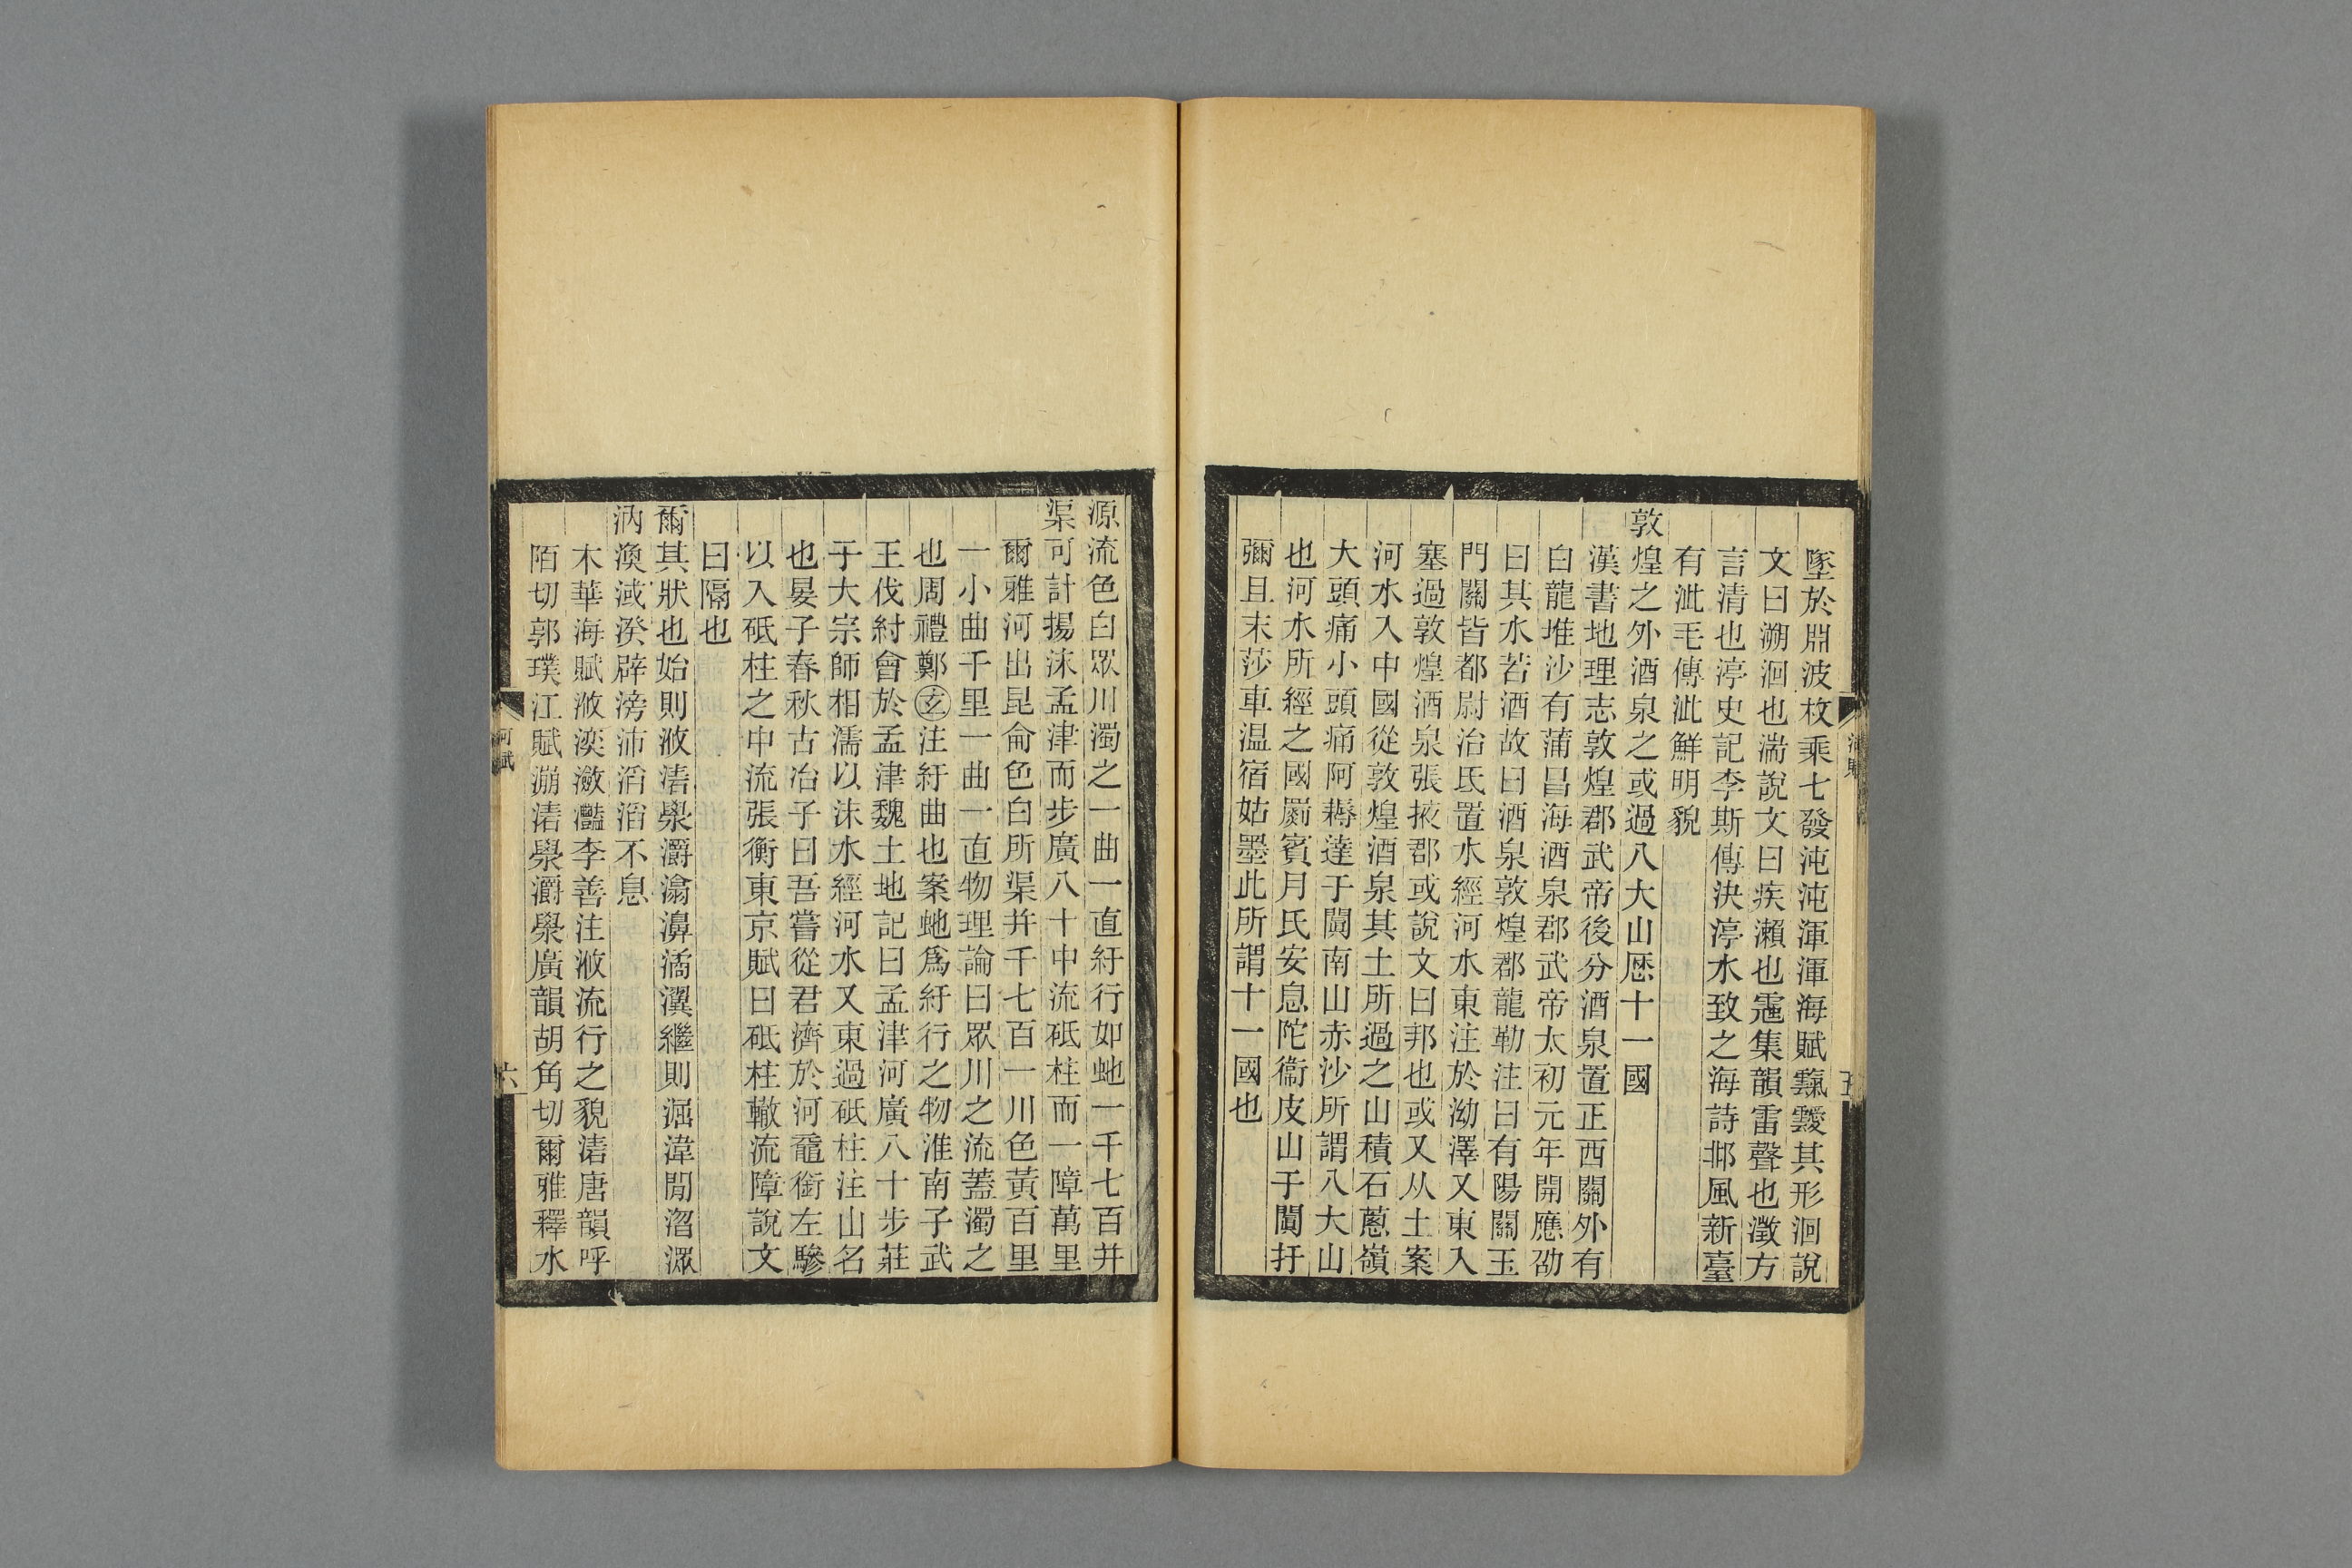 墜於淵波枚乘七發沌沌渾渾海賦靉其形洄說
文曰溯洄也湍說文曰疾瀨也集韻雷聲也澂方
言清也渟史記李斯傳決渟水致之海詩邶風新臺
有泚毛傳泚鮮明貌
敦煌之外酒泉之或過八大山厯十一國
漢書地理志敦煌郡武帝後分酒泉置正西關外有
白龍堆沙有蒲昌海酒泉郡武帝太初元年開應劭
曰其水若酒故曰酒泉敦煌郡龍勒注曰有陽關玉
門關皆都尉治氐置水經河水東注於泑澤又東入
塞過敦煌酒泉張掖郡或說文曰邦也或又从土案
河水入中國從敦煌酒泉其土所過之山積石蔥嶺
大頭痛小頭痛阿耨達于闐南山赤沙所謂八大山
也河水所經之國罽賓月氏安息陀衞皮山于闐扜
彌且末莎車温宿姑墨此所謂十一國也
河賦
五
源流色白眾川濁之一曲一直紆行如虵一千七百并
渠可計揚沫孟津而步廣八十中流砥柱而一障萬里
爾雅河出昆侖色白所渠并千七百一川色黃百里
一小曲千里一曲一直物理論曰眾川之流蓋濁之
也周禮鄭玄注紆曲也案虵爲紆行之物淮南子武
王伐紂會於孟津魏土地記曰孟津河廣八十步莊
子大宗師相濡以沫水經河水又東過砥柱注山名
也晏子春秋古冶子曰吾嘗從君濟於河黿銜左驂
以入砥柱之中流張衡東京賦曰砥柱轍流障說文
曰隔也
爾其狀也始則浟湱澩灂潝濞潏潩繼則淈湋閒溜潀
汭渙淢湀辟滂沛滔滔不息
木華海賦浟湙瀲灩李善注浟流行之貌湱唐韻呼
陌切郭璞江賦漰湱澩灂澩廣韻胡角切爾雅釋水
河賦
六